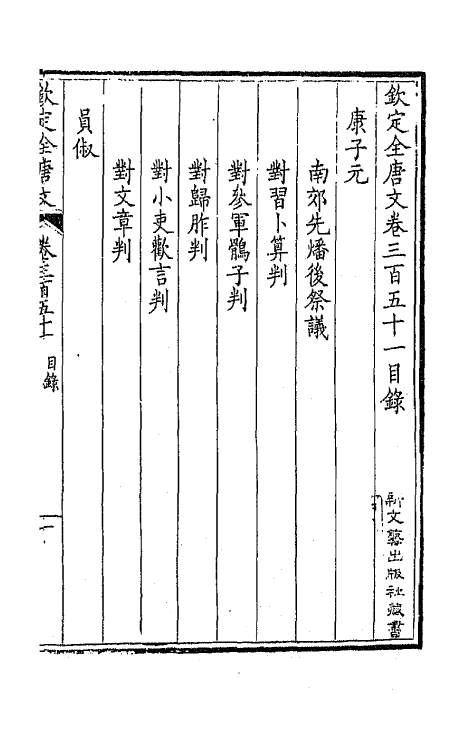 欽定全唐文卷三百五十一目錄
新文藝出版社藏書
康子元
南郊先燔後祭議
對習卜算判
對參軍鶻子判
對歸胙判
對小吏歡言判
對文章判
員俶
欽定全唐文
卷三百五十一
目錄
一